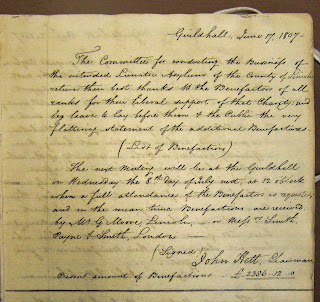 Guildhall, June 17, 1807.
The Committee for conducting the Business of
the intended Lunatic Asylum of the County of Lincoln
return their best thanks to the Benefactors of all
ranks for their liberal support of that Charity, and
beg leave to lay before them & the Public the very
flattering statement of the additional Benefactions.
(List of Benefactions)
The next Meeting will be at the Guildhall
on Wednesday the 8th Day of July next, at 12 o'Clock
when a full attendance of the Benefactors is requested,
and in the mean time Benefactions are received
by Mr. G Moore, Lincoln, or Messrs. Smith
Payne & Smith, London
(Signed)
John Chairman
Present amount of Benefactions £2336-12-0